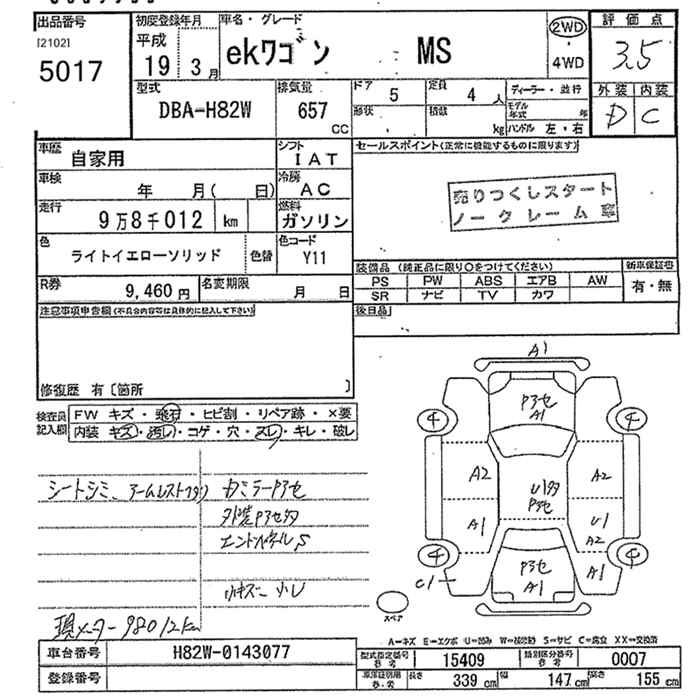 出品番号
[2102]
5017
初度登録年月
平成
19 3月
車名・グレード
ekワゴン MS
2WD
・
4WD
評価点
3.5
外装 内装
D C
型式
DBA-H82W
排気量
657
CC
ドア
5
定員
4人
形状
積載
kg
ディーラー・並行
モデル年式 年
ハンドル 左・右
車歴
自家用
シフト
IAT
セールスポイント(正常に機能するものに限ります)
車検
年 月( 日)
冷房
AC
売りつくしスタート
ノークレーム
走行
9万8千012 km
燃料
ガソリン
色
ライトイエローソリッド
色替
色コード
Y11
装備品 (純正品に限り○をつけてください)
新車保証書
PS PW ABS エアB AW
SR ナビ TV カワ
有・無
R券
9,460円
名変期限
月 日
後日品
注意事項申告欄(不具合内容等は具体的に記入して下さい)
修復歴 有〔箇所 〕
検査員
記入欄
FW キズ・飛石・ヒビ割・リペア跡・×要
内装 キズ・汚レ・コゲ・穴・スレ・キレ・破レ
シートシミ、アームレスト
カミラーPアセ
外装Pアセ多
エンドパネルS
小キズー小U
現メーター98012km
A1
Pアセ
A1
4 4
A2 U1多 A2
Pアセ
A1 U1
A2
4 4
C1 Pアセ A1
A1
スペア
A=キズ E=エクボ U=凹み W=補修跡 S=サビ C=腐食 XX=交換済
車台番号
H82W-0143077
型式指定番号
参考
15409
類別区分番号
参考
0007
登録番号
車庫証明用
参考
長さ
339cm
幅
147cm
高さ
155cm